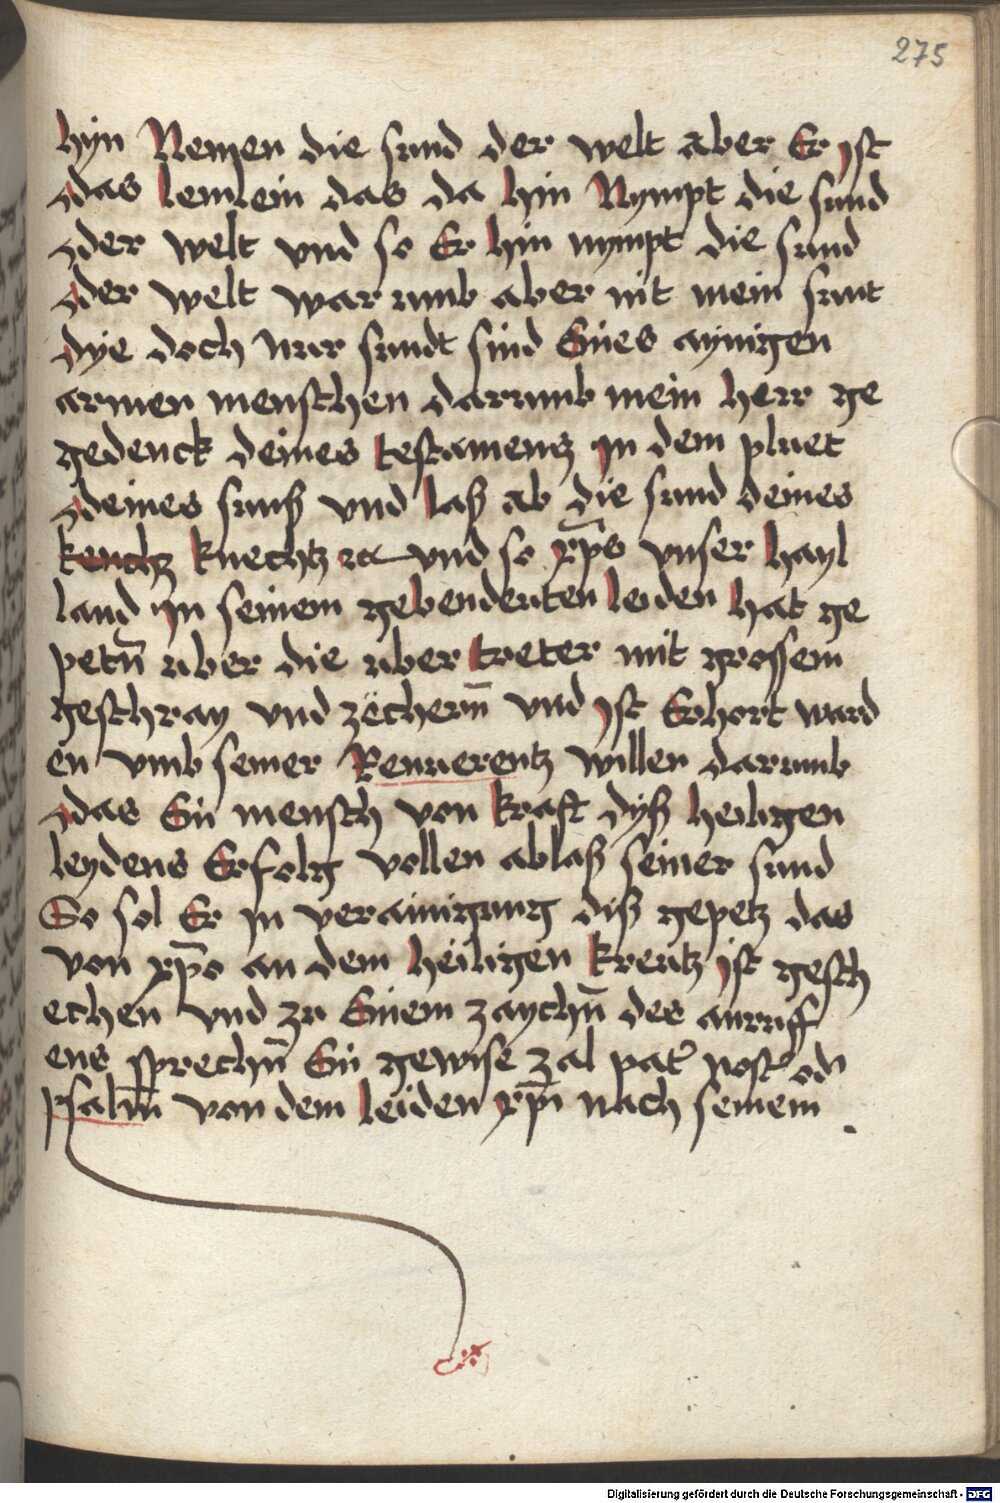 275
hyn Nemen die sund der welt aber Er ist
das lemlein das da hin Nympt die sund
der welt vnd so Er hin nympt die sund
der welt war umb aber nit mein sunt
dye doch nur sundt sind Eines aynigen
armen menschen darumb mein herr ge
gedenck deines testamentz in dem pluet
deines sunß vnd laß ab die sund deines
kenchtz knechtz ⁊c vnd so xp̄s vnser hayl
land in seinem gebenedeuten leiden hat ge
petn̄ uber die uber treter mit grossem
geschray vnd zëchern̄ vnd ist Erhort ward
en vmb seiner Reuuerentz willen darumb
das Ein mensch von kraft dyß heiligen
leydens Erfolg vollen ablaß seiner sund
So sol Er in verainigung diß gepetz das
von xp̄o an dem heiligen kreutz ist gesch
echen vnd zu Einem zaychn̄ des anruff
ens sprechn̄ Ein gewise zal pat̓ nost̓ od̓n
psalm̄ von dem leiden xp̄i nach seinem
Digitalisierung gefördert durch die Deutsche Forschungsgemeinschaft - DFG